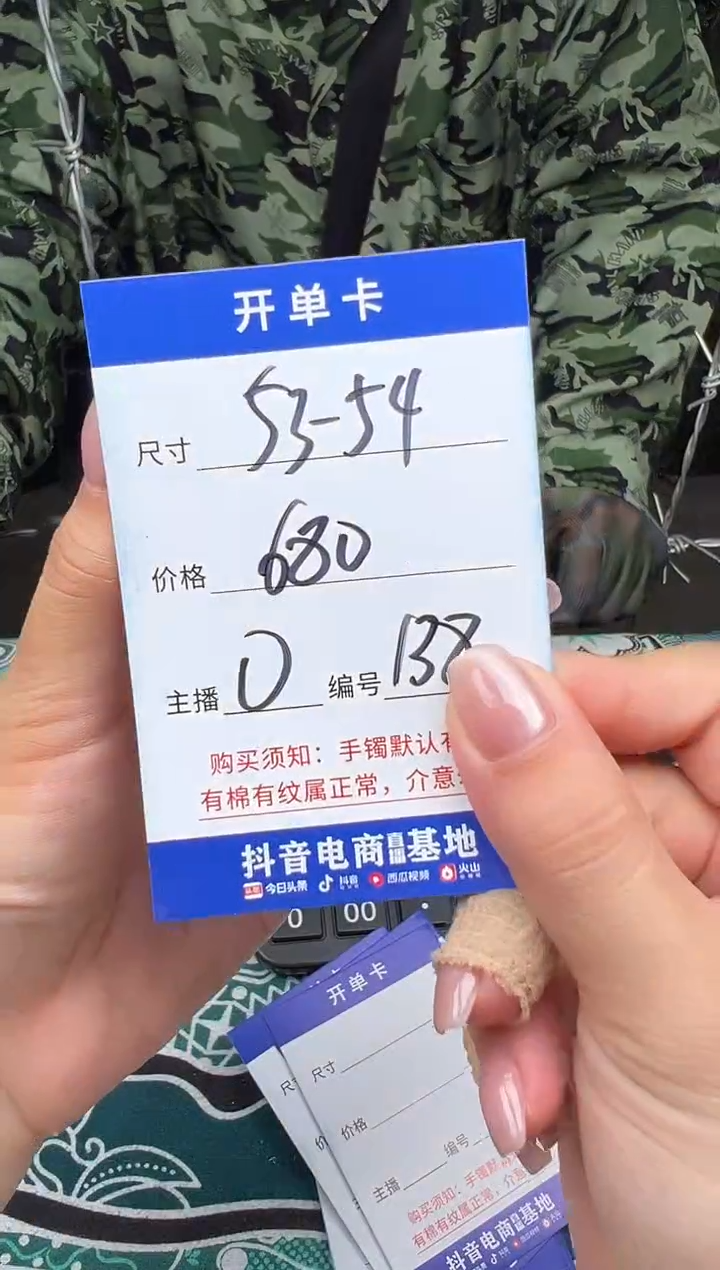 开单卡
尺寸 53-54
价格 680
主播 0 编号 138
购买须知：手镯默认有
有棉有纹属正常，介意
抖音电商直播基地
头条 今日头条 抖音 西瓜视频 火山
0 00 .
开单卡
尺寸
尺寸
价格
价
编号
主播
购买须知：手镯默
有棉有纹属正常，介意
抖音电商直播基地